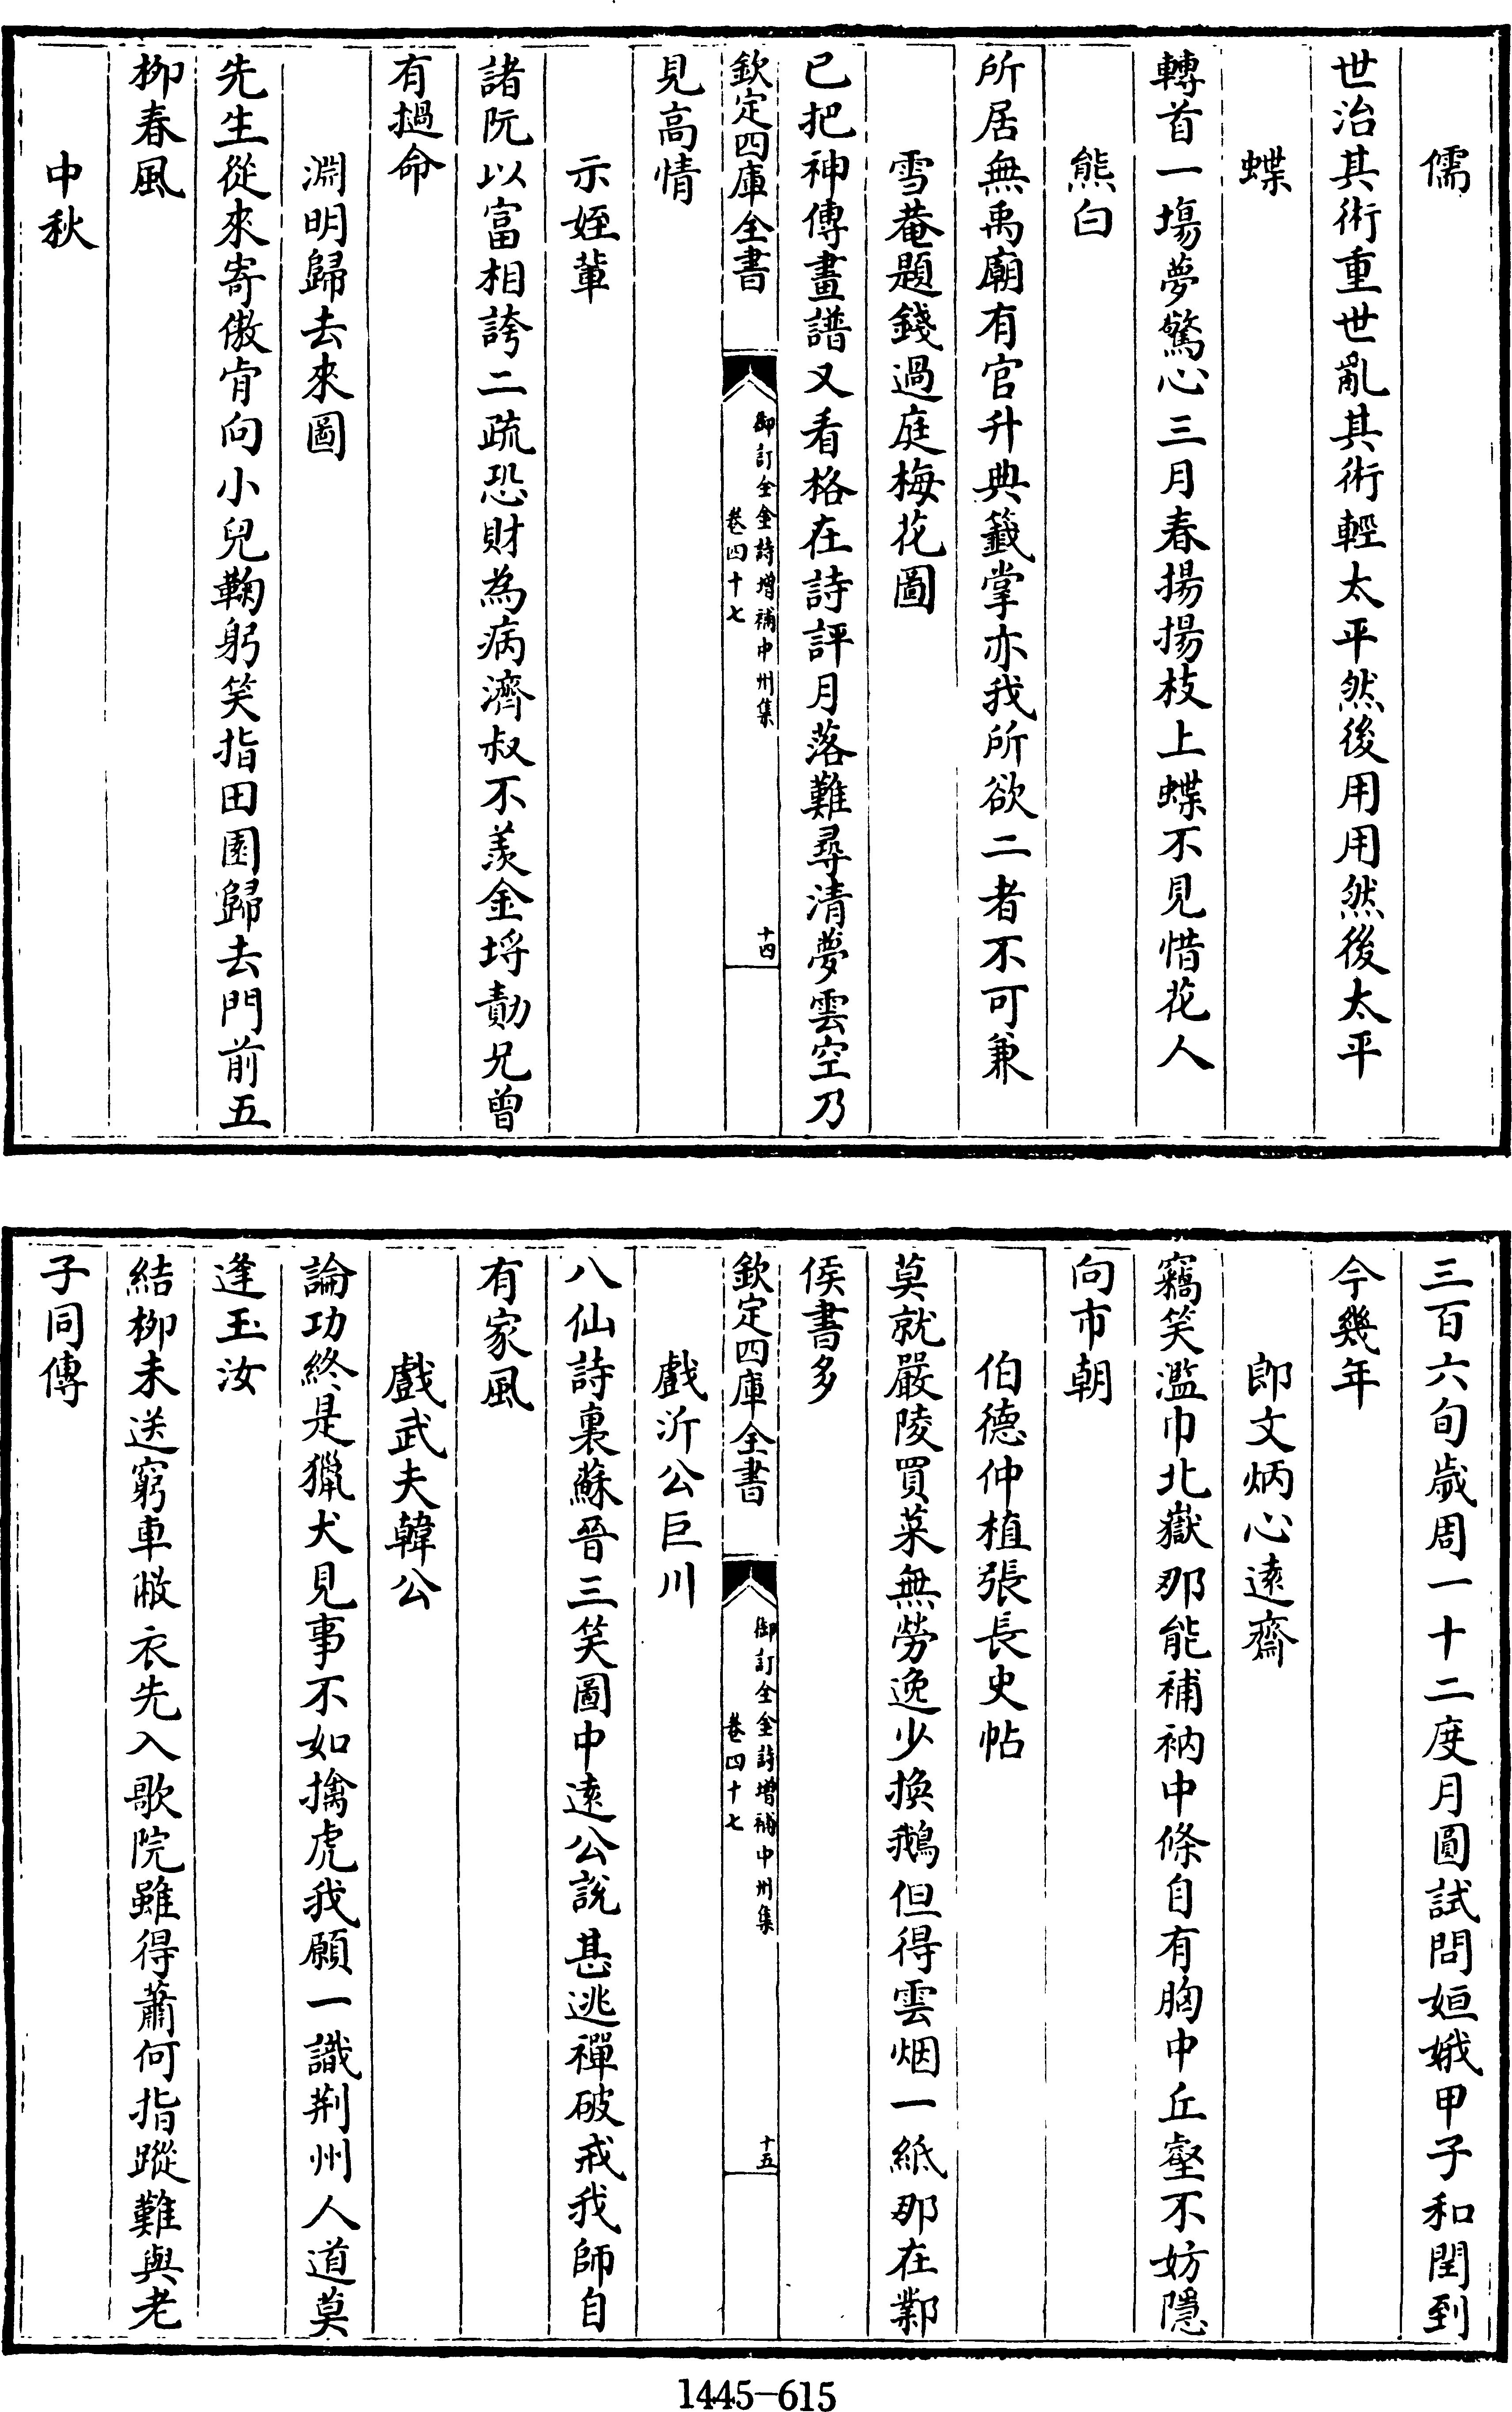 儒
世治其術重世亂其術輕太平然後用用然後太平
蝶
轉首一塲夢驚心三月春揚揚枝上蝶不見惜花人
熊白
所居無禹廟有官升典籤掌亦我所欲二者不可兼
雪菴題錢過庭梅花圖
已把神傳畫譜又看格在詩評月落難尋清夢雲空乃
欽定四庫全書
御訂全金詩增補中州集
卷四十七
十四
見高情
示姪輩
諸阮以富相誇二疏恐財為病濟叔不羨金埒勣兄曾
有撾命
淵明歸去來圖
先生從來寄傲肯向小兒鞠躬笑指田園歸去門前五
柳春風
中秋
三百六旬歲周一十二度月圓試問姮娥甲子和閏到
今幾年
郎文炳心遠齋
竊笑濫巾北嶽那能補衲中條自有胸中丘壑不妨隱
向市朝
伯德仲植張長史帖
莫就嚴陵買菜無勞逸少換鵝但得雲烟一紙那在鄴
侯書多
欽定四庫全書
御訂全金詩增補中州集
卷四十七
十五
戲沂公巨川
八仙詩裏蘇晉三笑圖中遠公說甚逃禪破戒我師自
有家風
戲武夫韓公
論功終是獵犬見事不如擒虎我願一識荆州人道莫
逢玉汝
結柳未送窮車敝衣先入歌院雖得蕭何指蹤難與老
子同傳
1445-615